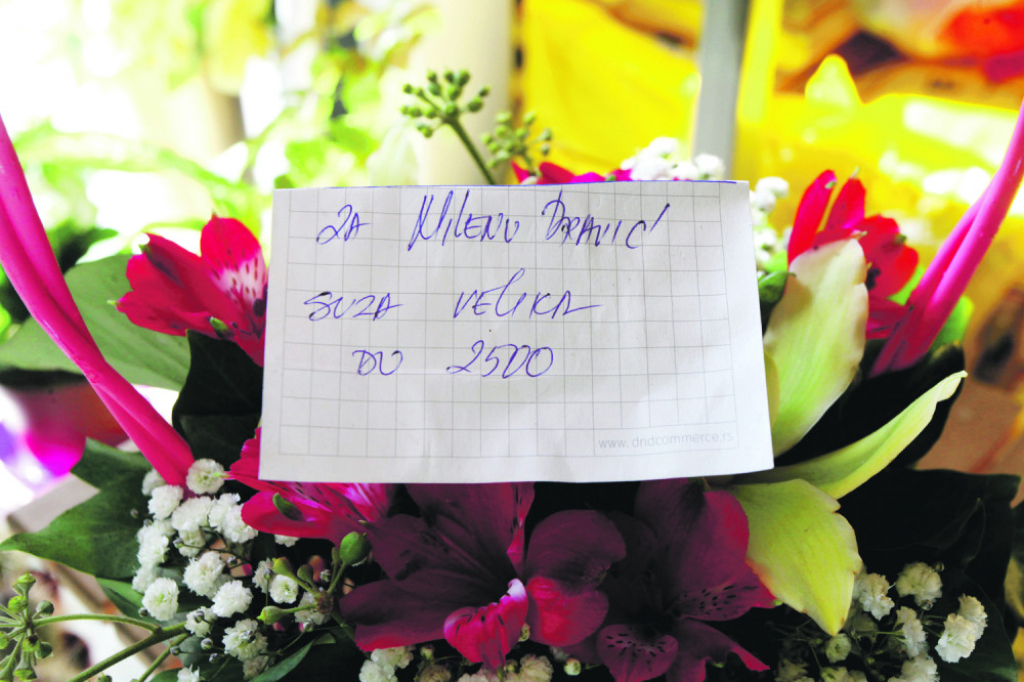 ZA MILENU DRAVIĆ
SUZA VELIKA
DO 2500
www.dndcommerce.rs